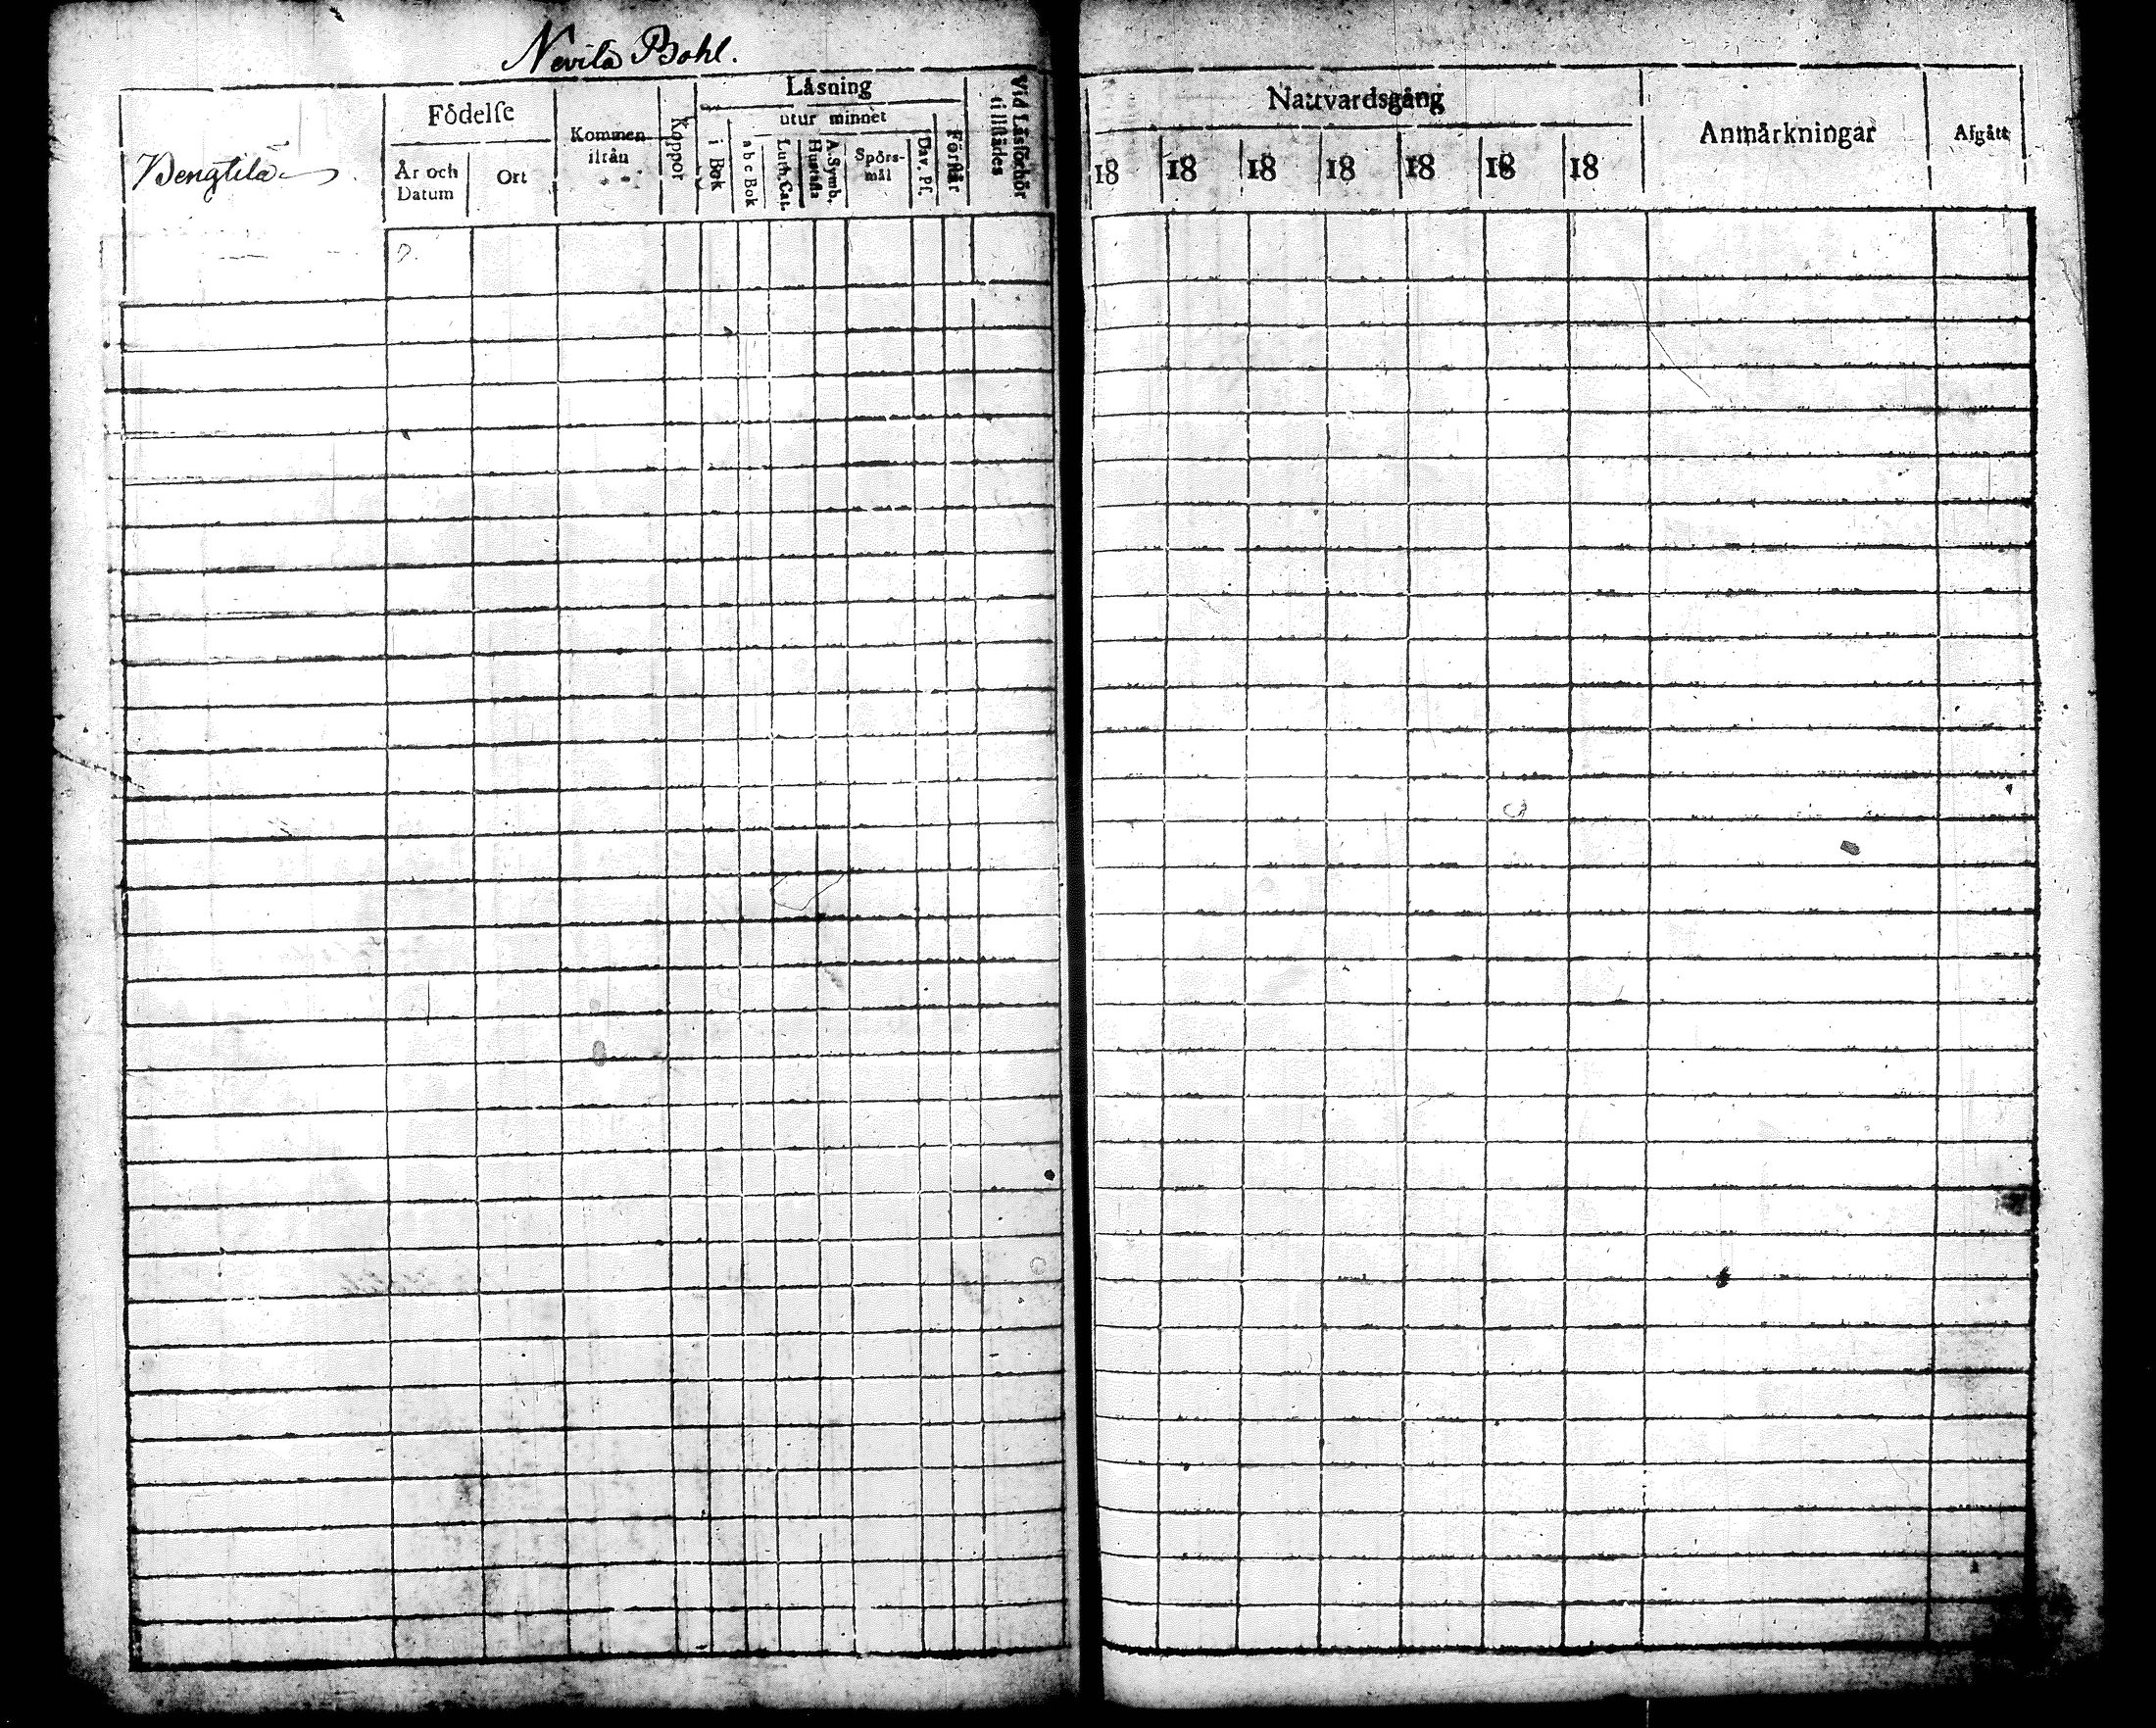 Nevilä Bohl.
Bengtilä
Födelse
År och Datum
Ort
Kommen ifrån
Koppor
Läsning
utur minnet
i Bok
abc Bok
Luth. Cat.
A. Symb. Hustafla
Spörs-mål
Dav. Ps.
Förstår
Vid Läsförhör tillstädes
Nattvardsgång
18 18 18 18 18 18 18
Anmärkningar
Afgått